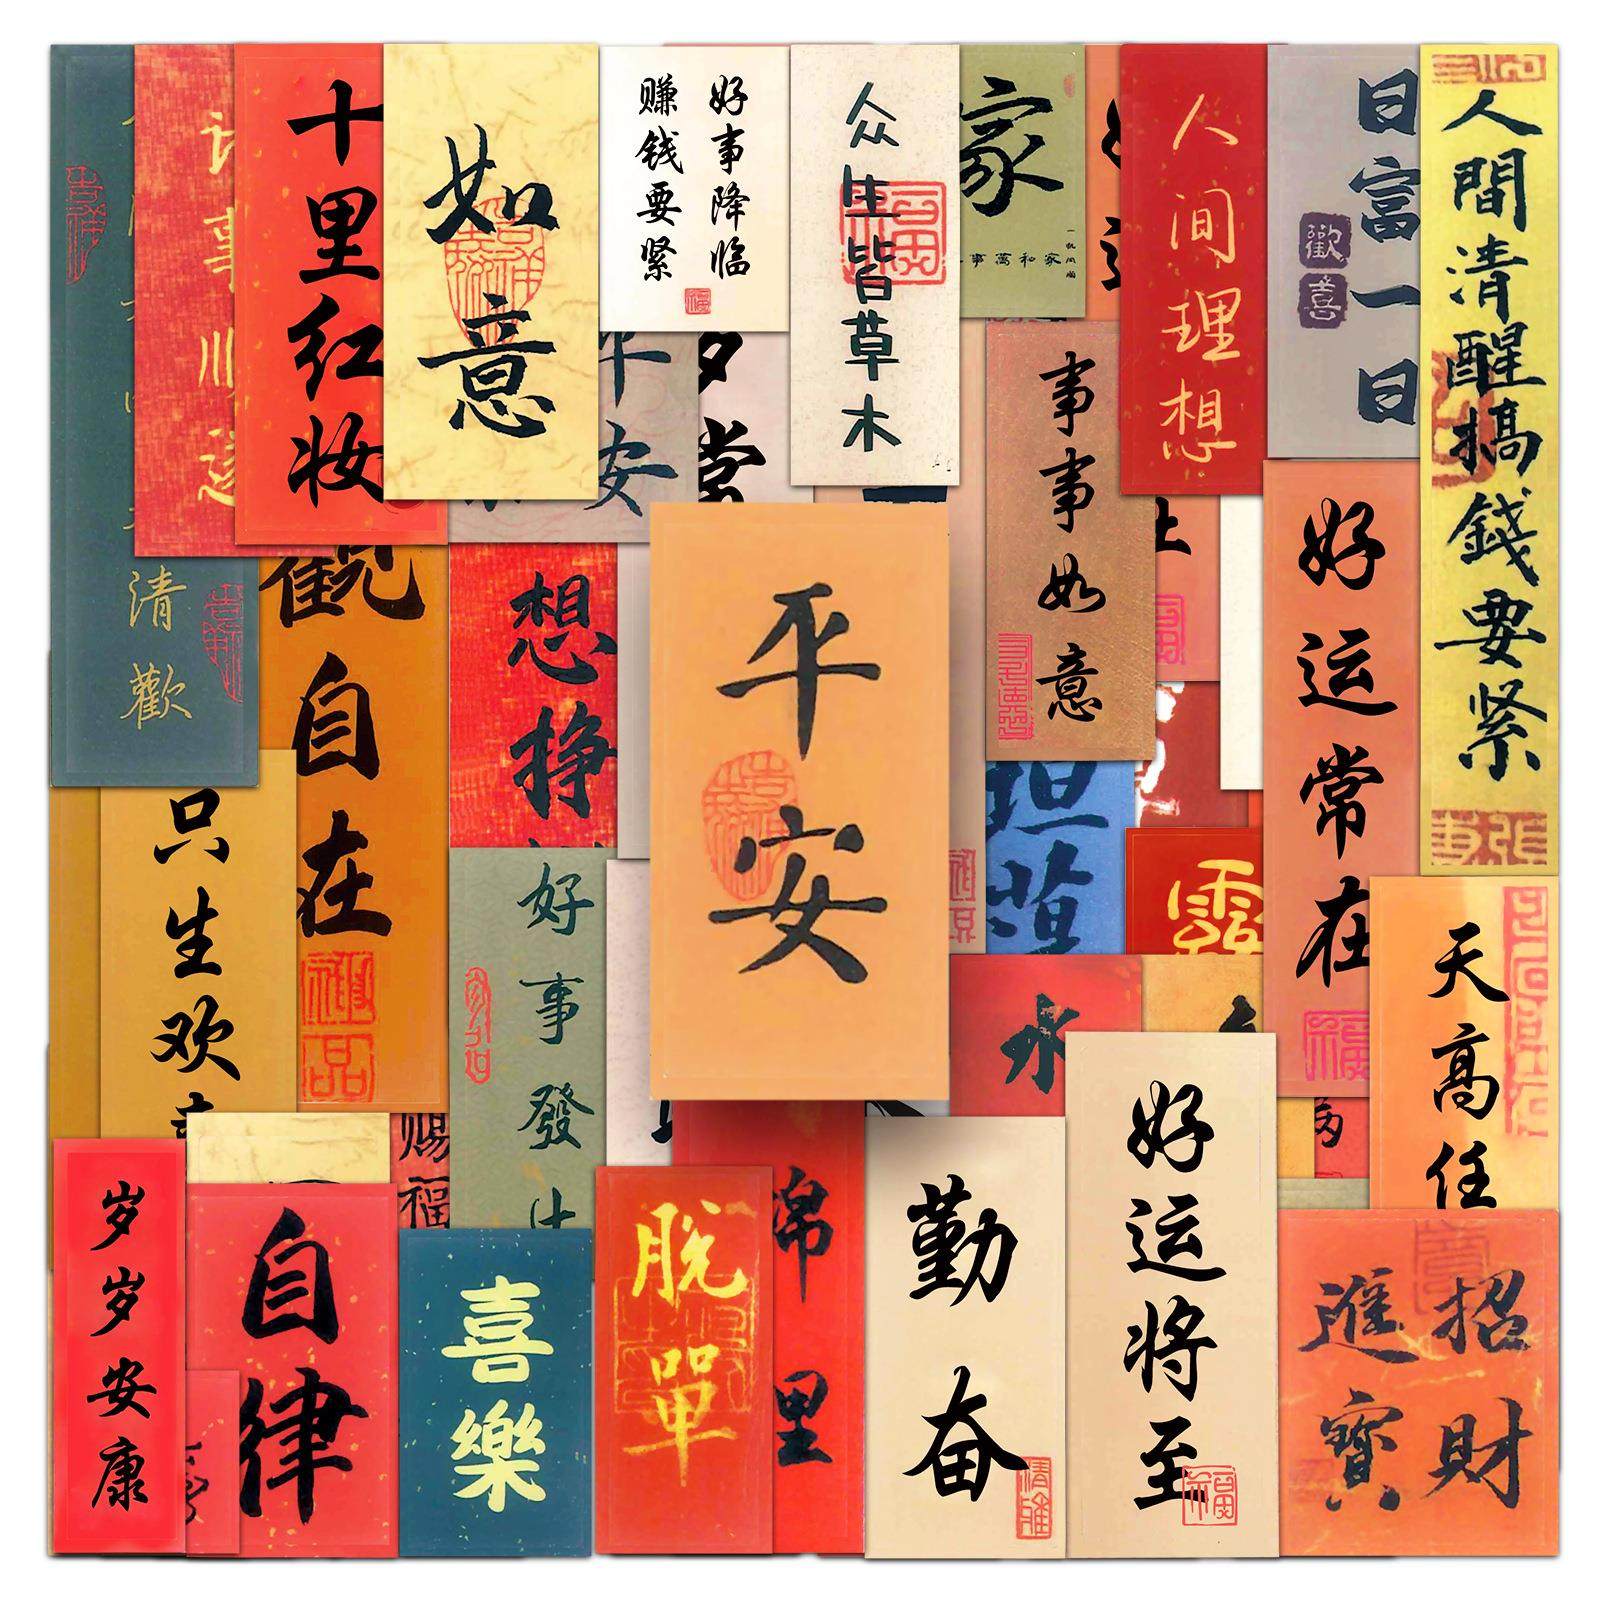 清歡
事順
十里红妆
如意
好事降临
赚钱要紧
众生皆草木
家
家和萬事
人间理想
日富一日
歡喜
人間清醒搞錢要緊
平安
常
事事如意
好运常在
觀自在
想挣
只生欢
好事發
平安
坦蕩
露
水
天高任
赐福
岁岁安康
自律
喜樂
脱單
锦里
勤奋
好运将至
招財
進寶